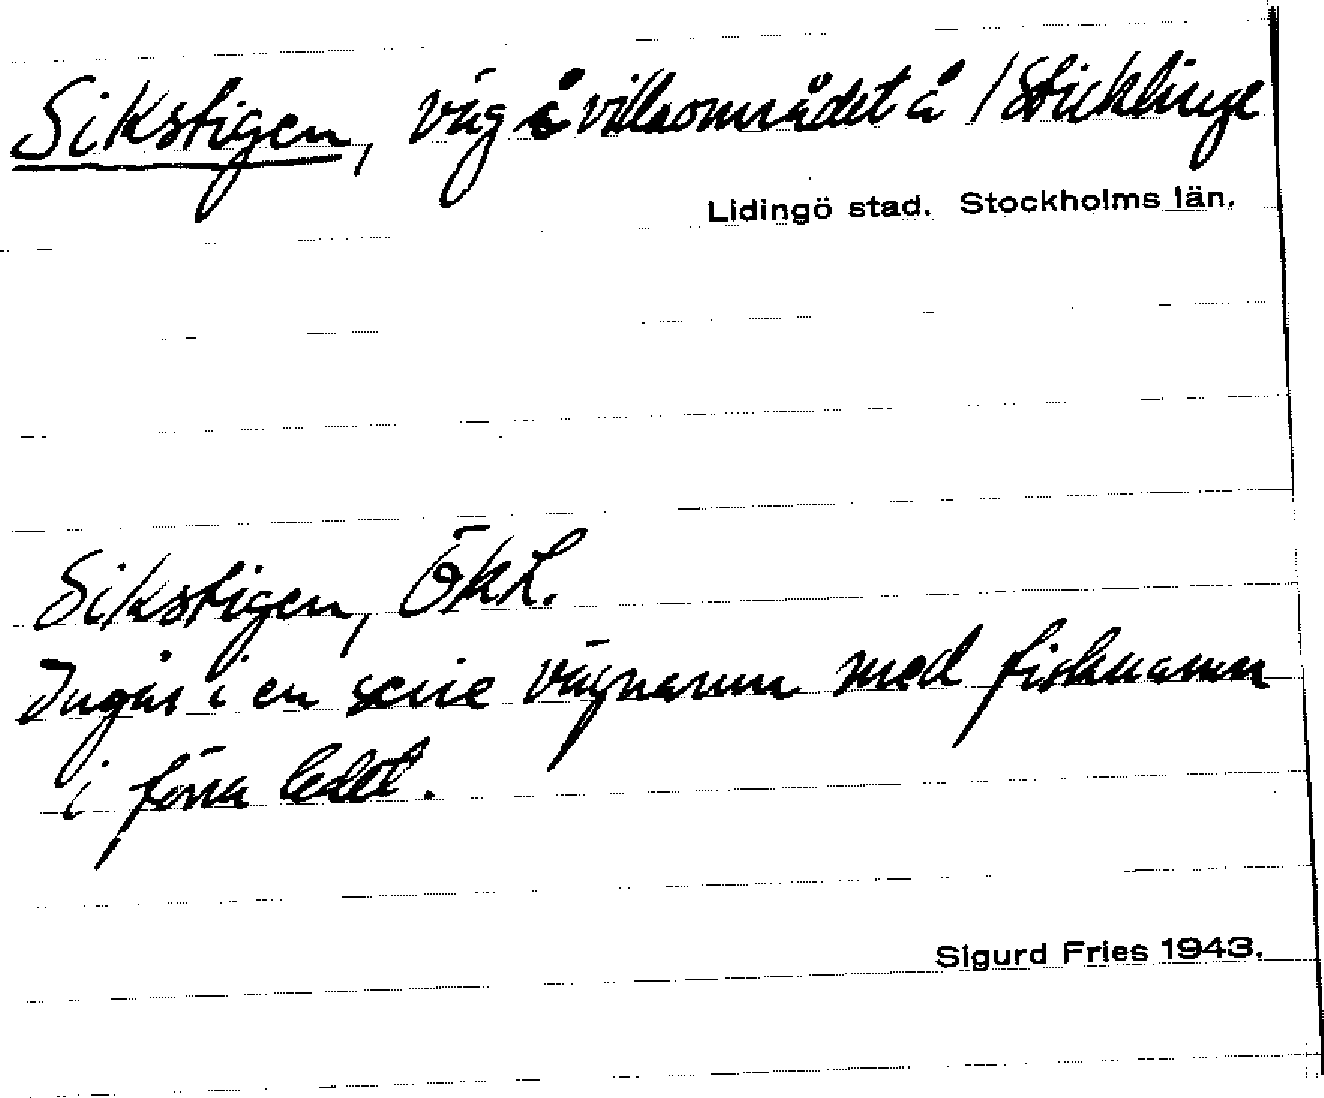 Sikstigen, väg å villaområdet å / Sticklinge
Lidingö stad. Stockholms län.
Sikstigen, ÖkL.
Ingår i en serie vägnamn med fisknamn
i förra ledet.
Sigurd Fries 1943.